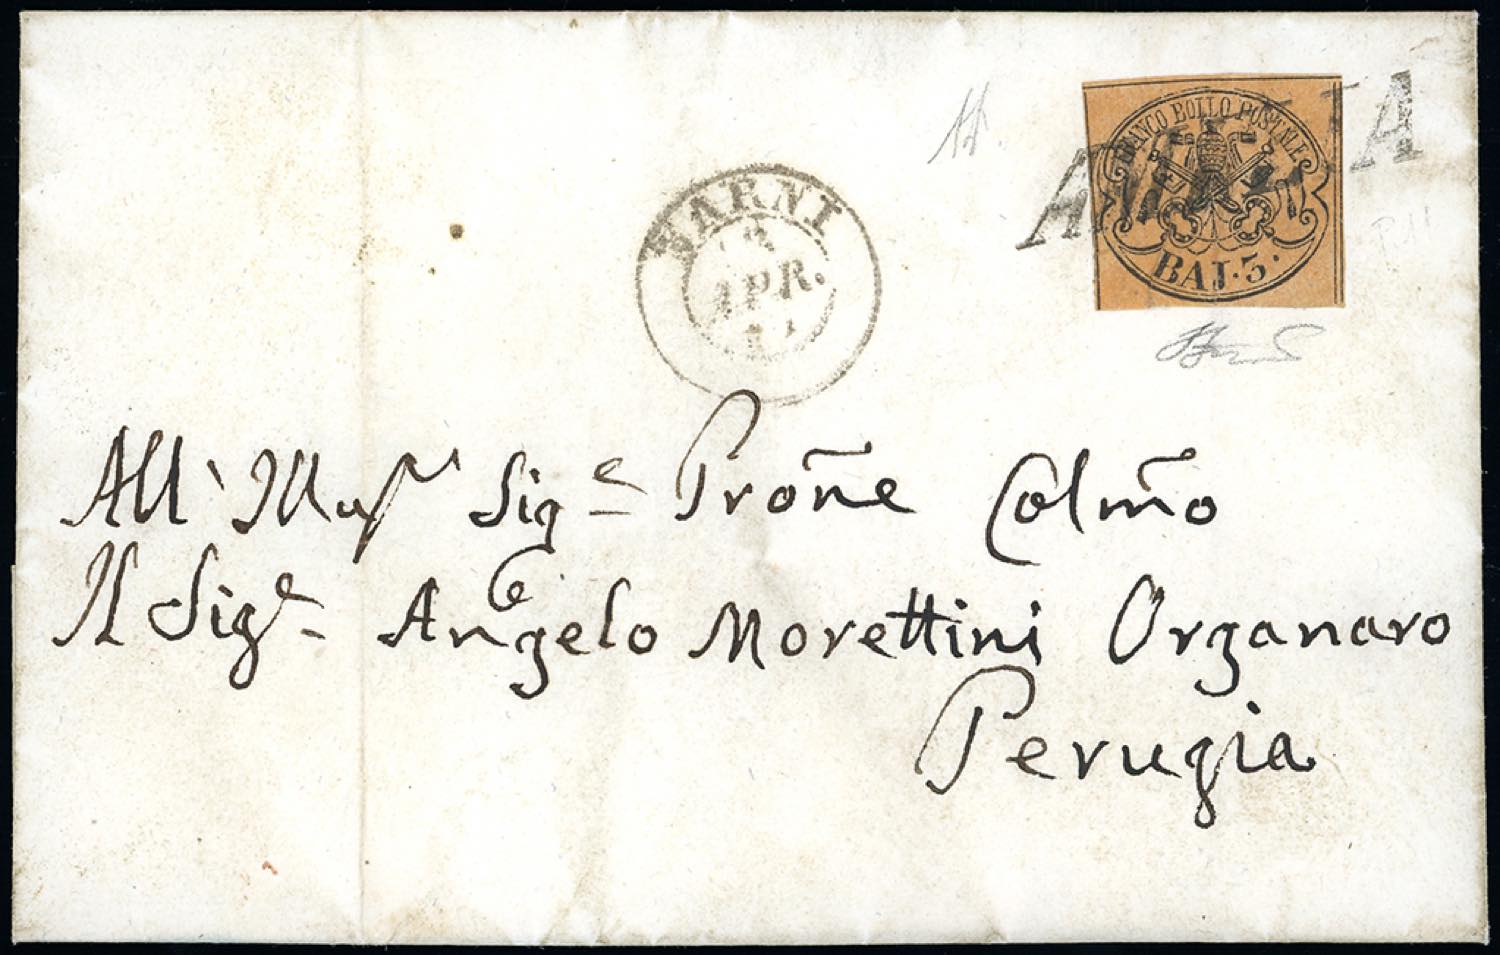 FRANCO BOLLO POSTALE
BAJ·3·
NARNI
APR.
All' Sig.e Prone Colmo
Il Sig.e Angelo Morettini Organaro
Perugia